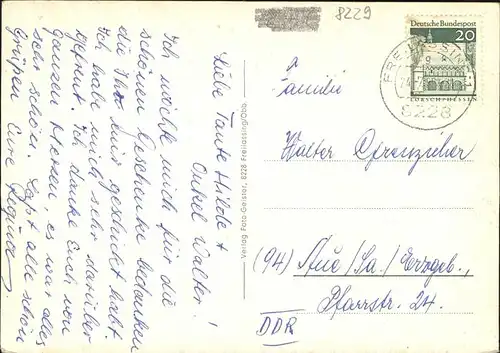 8229
Liebe Tante Hilde +
Onkel Walter!
Ich möchte mich für die
schönen Geschenke bedanken
die Ihr mir geschickt habt.
Ich habe mich sehr darüber
gefreut. Ich danke Euch von
ganzen Herzen, es war alles
sehr schön. Laßt alle schön
Grüßen Eure
Regina
Verlag Foto-Geistert, 8228 Freilassing/Obb.
Deutsche Bundespost
20
LORSCH·HESSEN
FREILASSING
8228
Familie
Walter
(94) Aue/Sa./Erzgeb.
Pfarrstr. 24.
DDR